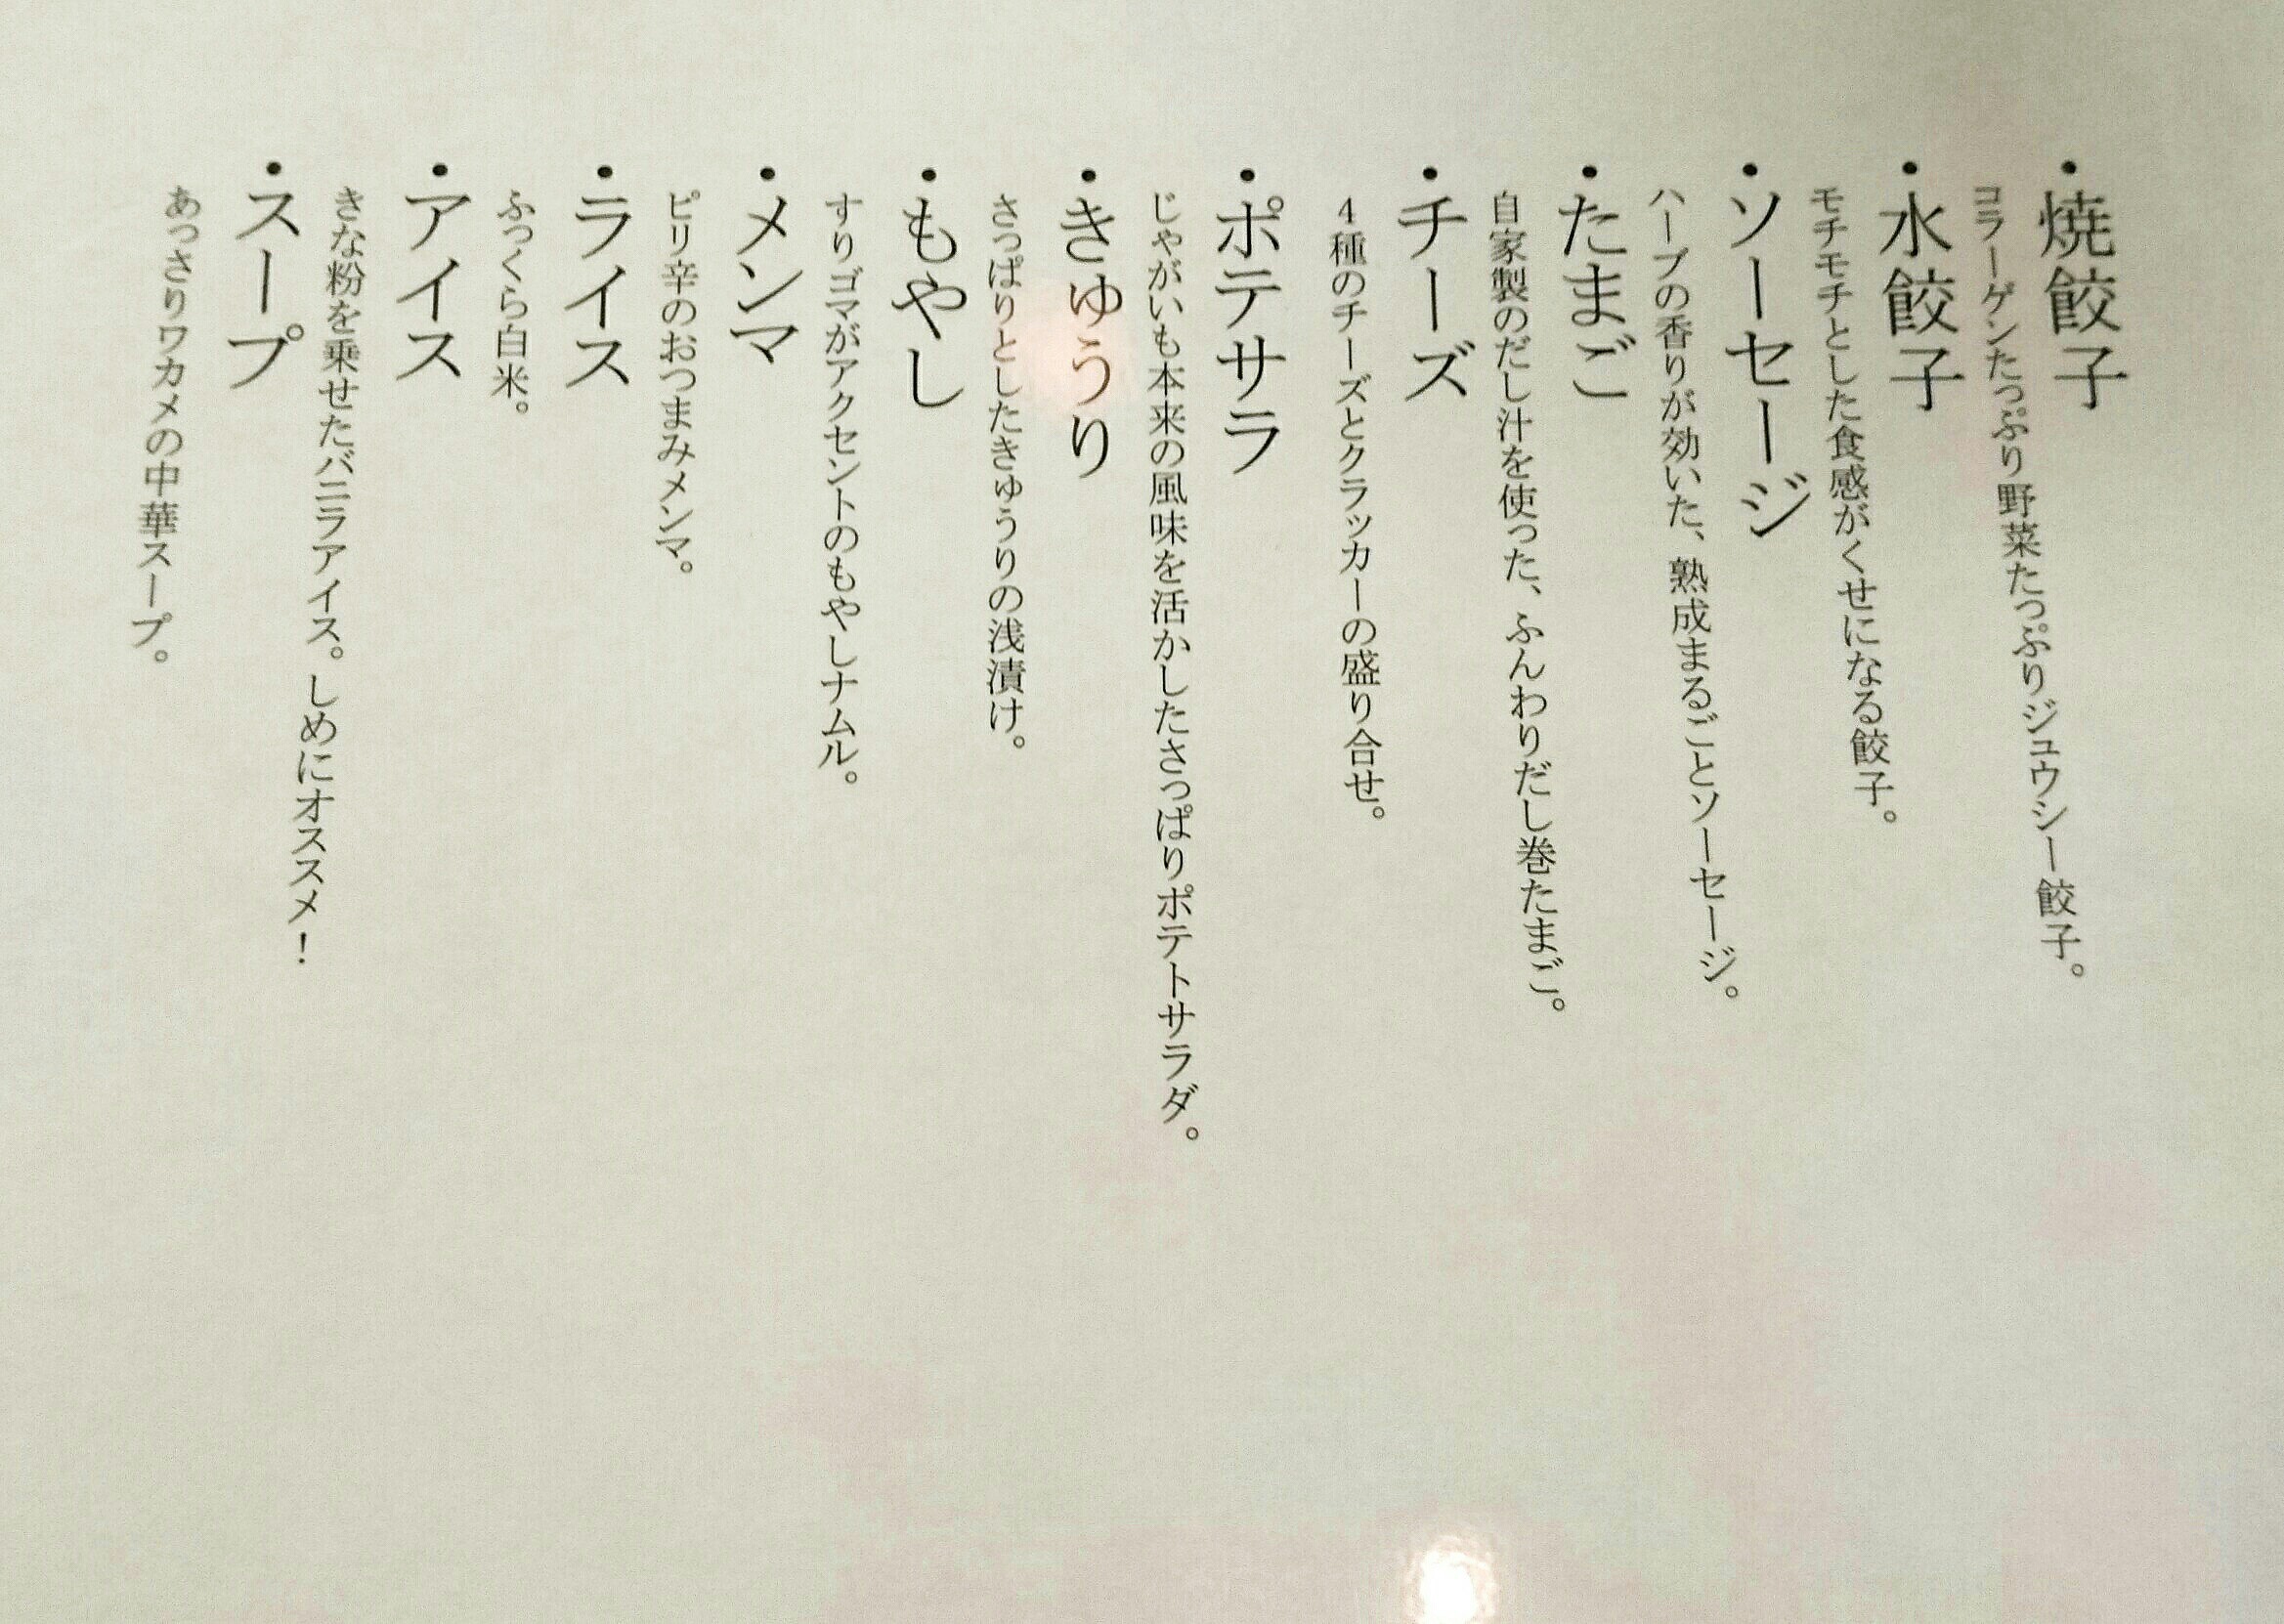 ・焼餃子
コラーゲンたっぷり野菜たっぷりジュウシー餃子。
・水餃子
モチモチとした食感がくせになる餃子。
・ソーセージ
ハーブの香りが効いた、熟成まるごとソーセージ。
・たまご
自家製のだし汁を使った、ふんわりだし巻たまご。
・チーズ
4種のチーズとクラッカーの盛り合せ。
・ポテサラ
じゃがいも本来の風味を活かしたさっぱりポテトサラダ。
・きゅうり
さっぱりとしたきゅうりの浅漬け。
・もやし
すりゴマがアクセントのもやしナムル。
・メンマ
ピリ辛のおつまみメンマ。
・ライス
ふっくら白米。
・アイス
きな粉を乗せたバニラアイス。しめにオススメ！
・スープ
あっさりワカメの中華スープ。